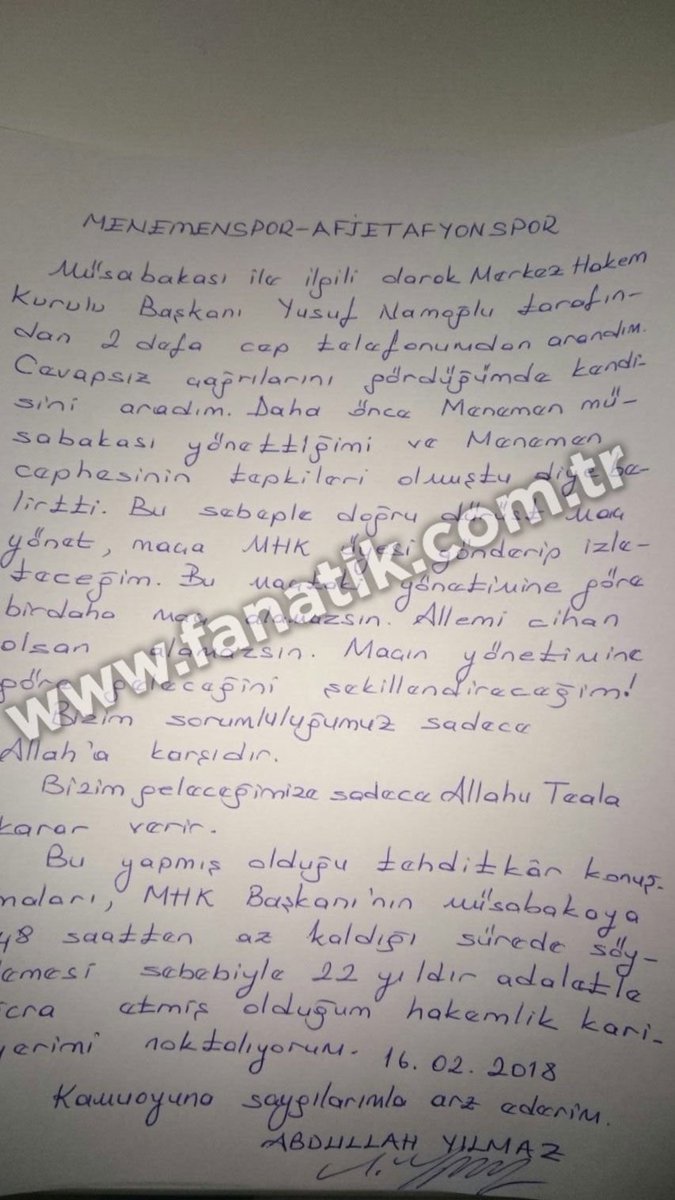 MENEMENSPOR-AFJETAFYONSPOR
Müsabakası ile ilgili olarak Merkez Hakem
Kurulu Başkanı Yusuf Namoğlu tarafın-
dan 2 defa cep telefonumdan arandım.
Cevapsız çağrılarını gördüğümde kendi-
sini aradım. Daha önce Menemen mü-
sabakası yönettiğimi ve Menemen
cephesinin tepkileri olmuştu diye be-
lirtti. Bu sebeple doğru dürüst maç
yönet, maça MHK üyesi gönderip izle-
teceğim. Bu maçtaki yönetimine göre
birdaha maç alamazsın. Allemi cihan
olsan alamazsın. Maçın yönetimine
göre geleceğini şekillendireceğim!
Bizim sorumluluğumuz sadece
Allah'a karşıdır.
Bizim geleceğimize sadece Allahu Teala
karar verir.
Bu yapmış olduğu tehditkâr konuş-
maları, MHK Başkanı'nın müsabakaya
48 saatten az kaldığı sürede söy-
lemesi sebebiyle 22 yıldır adaletle
icra etmiş olduğum hakemlik kari-
yerimi noktalıyorum. 16.02.2018
Kamuoyuna saygılarımla arz ederim.
ABDULLAH YILMAZ
www.fanatik.com.tr